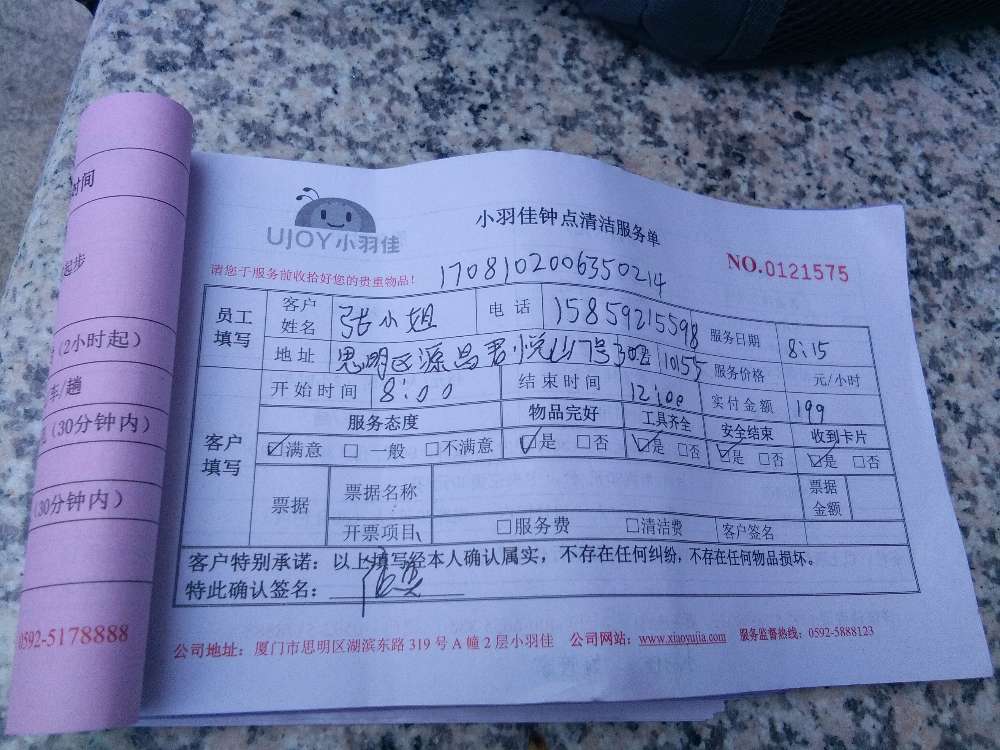 时间
起步
(2小时起)
车/趟
(30分钟内)
(30分钟内)
0592-5178888
UJOY小羽佳
小羽佳钟点清洁服务单
NO.0121575
请您于服务前收拾好您的贵重物品!
1708102006350214
员工填写 客户姓名 张小姐 电话 15859215598 服务日期 8:15
地址 思明区源昌君悦山7号 服务价格 元/小时
开始时间 8:00 结束时间 12:00 实付金额 199
客户填写 服务态度 物品完好 工具齐全 安全结束 收到卡片
☑满意 □一般 □不满意 ☑是 □否 ☑是 □否 ☑是 □否 ☑是 □否
票据 票据名称 票据金额
开票项目 □服务费 □清洁费 客户签名
客户特别承诺：以上填写经本人确认属实，不存在任何纠纷，不存在任何物品损坏。
特此确认签名：
公司地址：厦门市思明区湖滨东路 319 号 A 幢 2 层小羽佳 公司网站：www.xiaoyujia.com 服务监督热线：0592-5888123